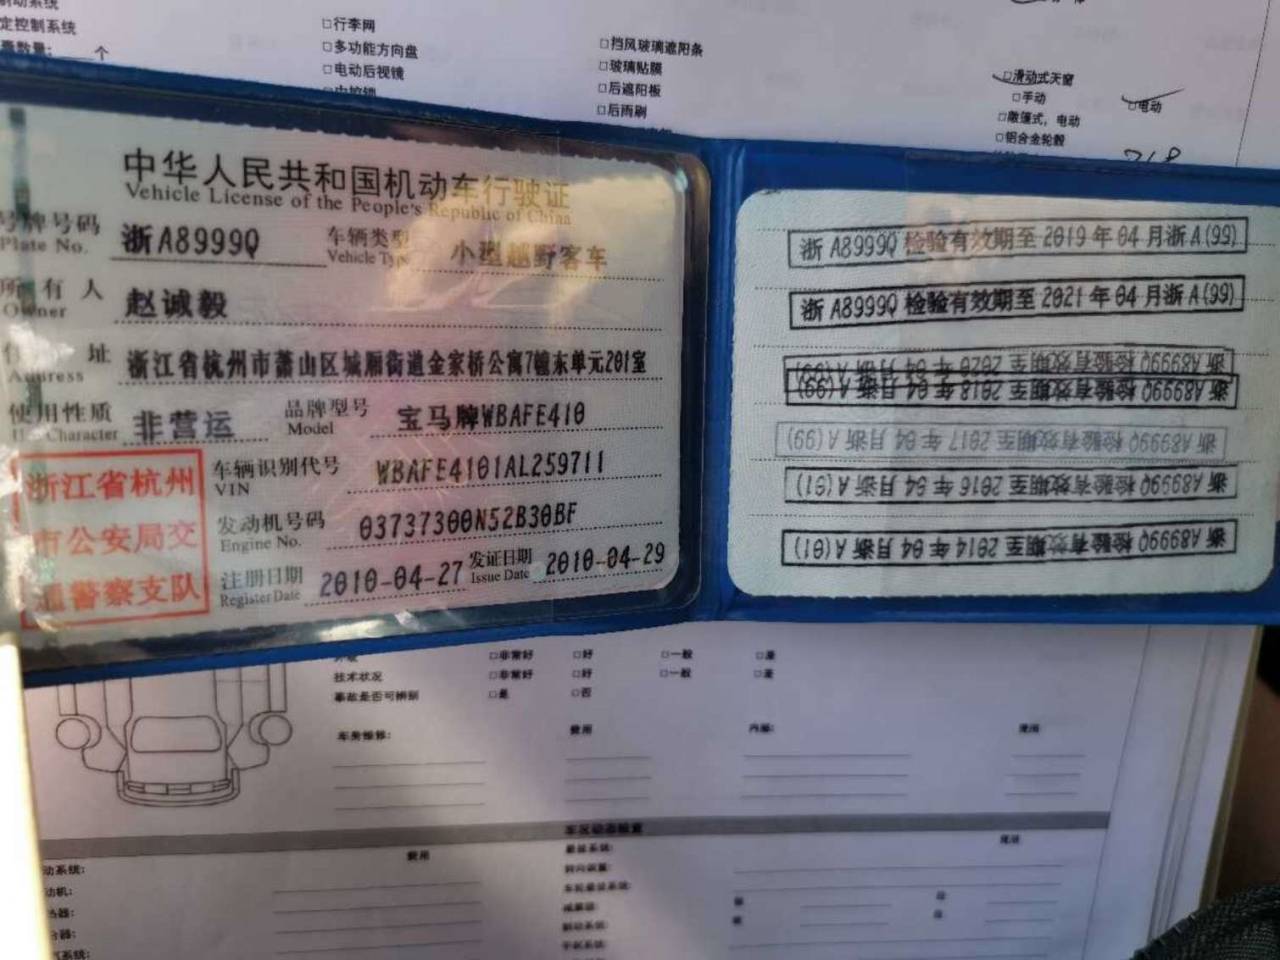 定控制系统
个
□行李网
□多功能方向盘
□电动后视镜
□挡风玻璃遮阳条
□玻璃贴膜
□后遮阳板
□后雨刷
□滑动式天窗
□手动 □电动
□敞篷式，电动
□铝合金轮毂
中华人民共和国机动车行驶证
Vehicle License of the People's Republic of China
号牌号码 浙A8999Q 车辆类型 小型越野客车
Plate No. Vehicle Type
所有人 赵诚毅
Owner
住址 浙江省杭州市萧山区城厢街道金家桥公寓7幢东单元201室
Address
使用性质 非营运 品牌型号 宝马牌WBAFE410
Use Character Model
浙江省杭州
市公安局交
通警察支队
车辆识别代号 WBAFE4101AL259711
VIN
发动机号码 03737300N52B30BF
Engine No.
注册日期 2010-04-27 发证日期 2010-04-29
Register Date Issue Date
浙A8999Q 检验有效期至2019年04月浙A(99)
浙A8999Q 检验有效期至2021年04月浙A(99)
浙A8999Q 检验有效期至2020年04月浙A(99)
浙A8999Q 检验有效期至2018年04月浙A(99)
浙A8999Q 检验有效期至2017年04月浙A(99)
浙A8999Q 检验有效期至2016年04月浙A(01)
浙A8999Q 检验有效期至2014年04月浙A(01)
□非常好 □好 □一般 □差
技术状况 □非常好 □好 □一般 □差
事故是否可辨别 □是 □否
车身维修: 费用 内饰: 费用
费用